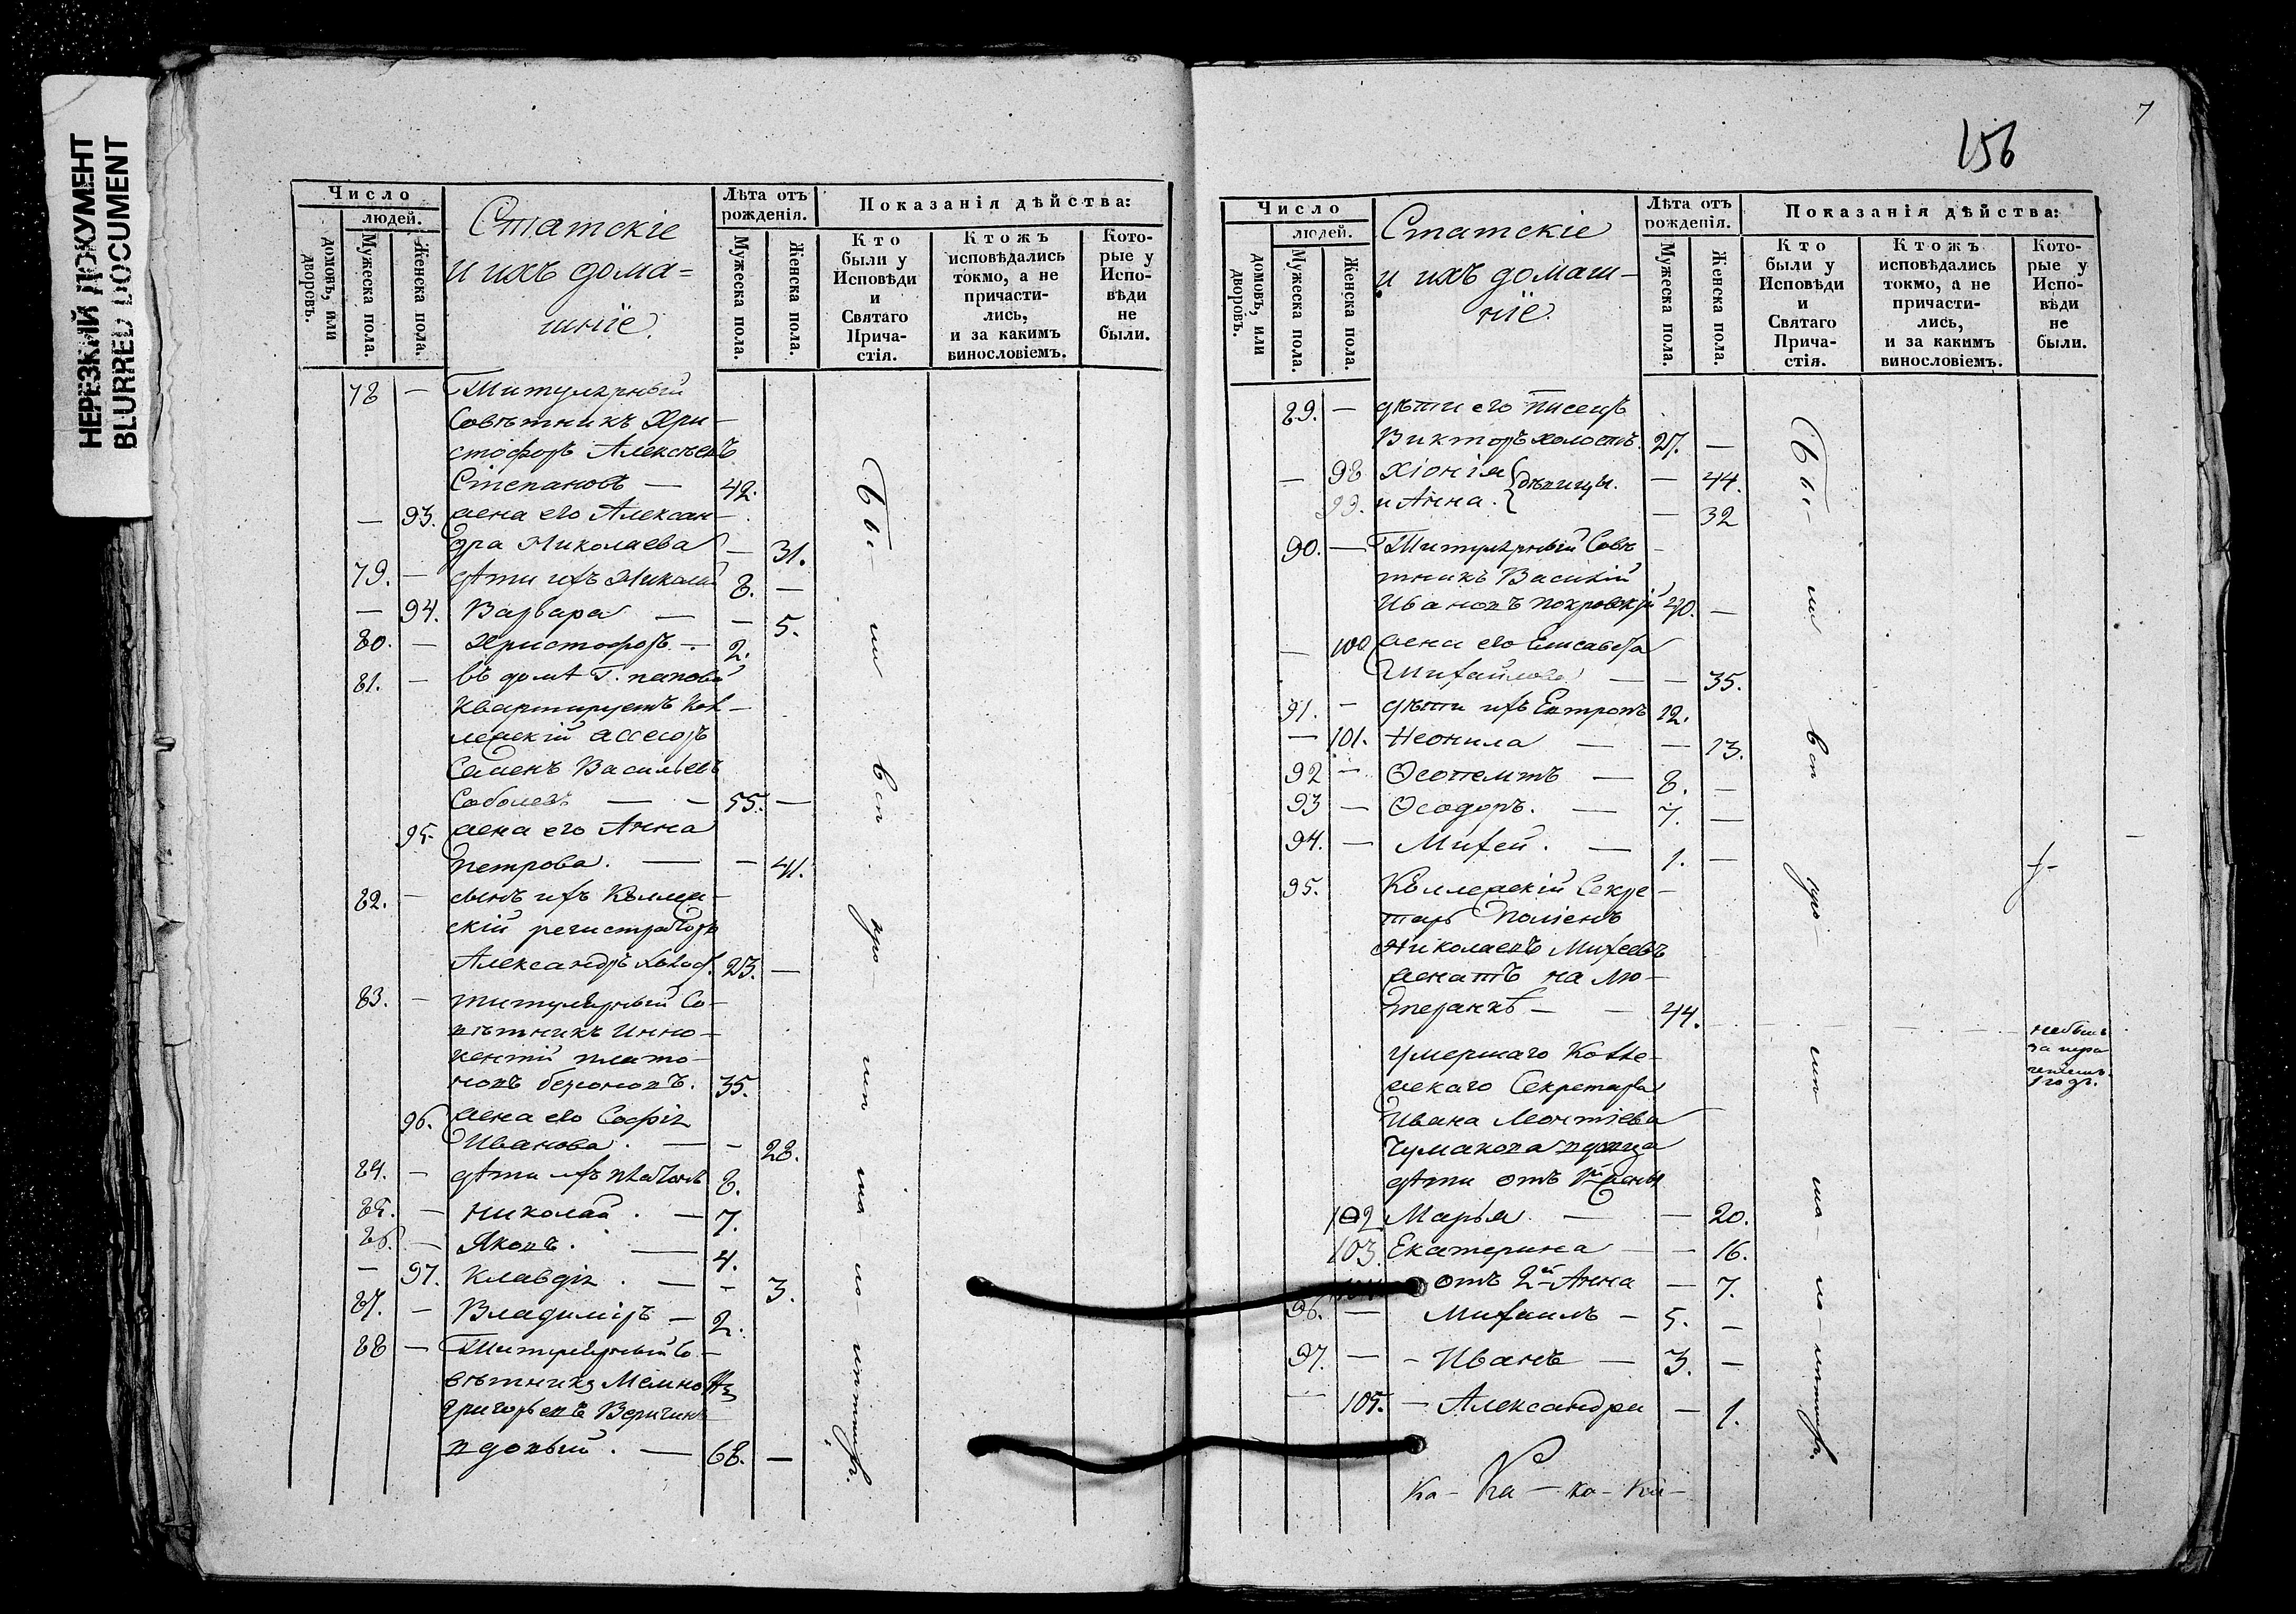 НЕРЕЗКИЙ ДОКУМЕНТ
BLURRED DOCUMENT
Число
людей.
домовъ, или дворовъ.
Мужеска пола.
Женска пола.
Статскіе
и ихъ дома=
шніе.
Лѣта отъ
рожденія.
Мужеска пола.
Женска пола.
Показанія дѣйства:
Кто
были у
Исповѣди
и
Святаго
Прича-
стія.
Ктожъ
исповѣдались
токмо, а не
причасти-
лись,
и за какимъ
винословіемъ.
Кото-
рые у
Испо-
вѣди
не
были.
78 — Титулярный
Совѣтникъ Хри-
стофоръ Алексѣевъ
Степановъ — 42.
— 93. жена его Алексан-
дра Николаева — 31.
79. — дѣти ихъ Николай 8. —
— 94. Варвара — — 5.
80. — Христофоръ — 2.
81. — въ домѣ Г.
квартируетъ Кол-
лежскій ассесоръ
Семенъ Васильевъ
Соболевъ — — 55. —
95. жена его Анна
Петрова. — — 41.
82. — сынъ ихъ Коллеж-
скій регистраторъ
Александръ холос. 23. —
83. — титулярный Со-
вѣтникъ Инно-
кентій Плато-
новъ 35.
96. жена его Софія
Иванова. — — 28.
84. — дѣти ихъ Платонъ 8.
85. — Николай. — 7.
86. — Яковъ. — 4.
— 97. Клавдія. — — 3.
87. — Владиміръ — 2.
88 — Титулярный Со-
вѣтникъ
Григорьевъ Веригинъ
вдовый. — 68. —
Бы- ли вси при- ча- 
7
156
Число
людей.
домовъ, или дворовъ.
Мужеска пола.
Женска пола.
Статскіе
и ихъ домаш-
ніе
Лѣта отъ
рожденія.
Мужеска пола.
Женска пола.
Показанія дѣйства:
Кто
были у
Исповѣди
и
Святаго
Прича-
стія.
Ктожъ
исповѣдались
токмо, а не
причасти-
лись,
и за какимъ
винословіемъ.
Кото-
рые у
Испо-
вѣди
не
были.
89. — дѣти его писецъ
Викторъ холостъ. 27. —
— 98 Хіонія } дѣвицы. — 44.
99. и Анна. — 32
90. — Титулярный Совѣ-
тникъ Василій
Ивановъ Покровскій 40. —
— 100 жена его Елисавета
Михайлова — — 35.
91. — дѣти ихъ Евтропъ 12.
— 101. Неонила — — 13.
92 — Ѳеопемптъ — 8. —
93 — Ѳеодоръ. — 7. —
94. — Михей. — 1. —
95. Коллежскій Секре-
тарь Полiенъ
Николаевъ Михеевъ
женатъ на лю-
теранкѣ — — 44.
не былъ
1 годъ.
умершаго Колле-
жскаго Секретаря
Ивана Леонтіева
Чумакова вдовца
дѣти отъ 1й жены
102 Марья — — 20.
103. Екатерина — — 16.
отъ 2й Анна — 7.
96. — Михаилъ — 5. —
97. — - Иванъ — 3. —
— 105. — Александра — 1.
Ка - Ка - ка - ка -